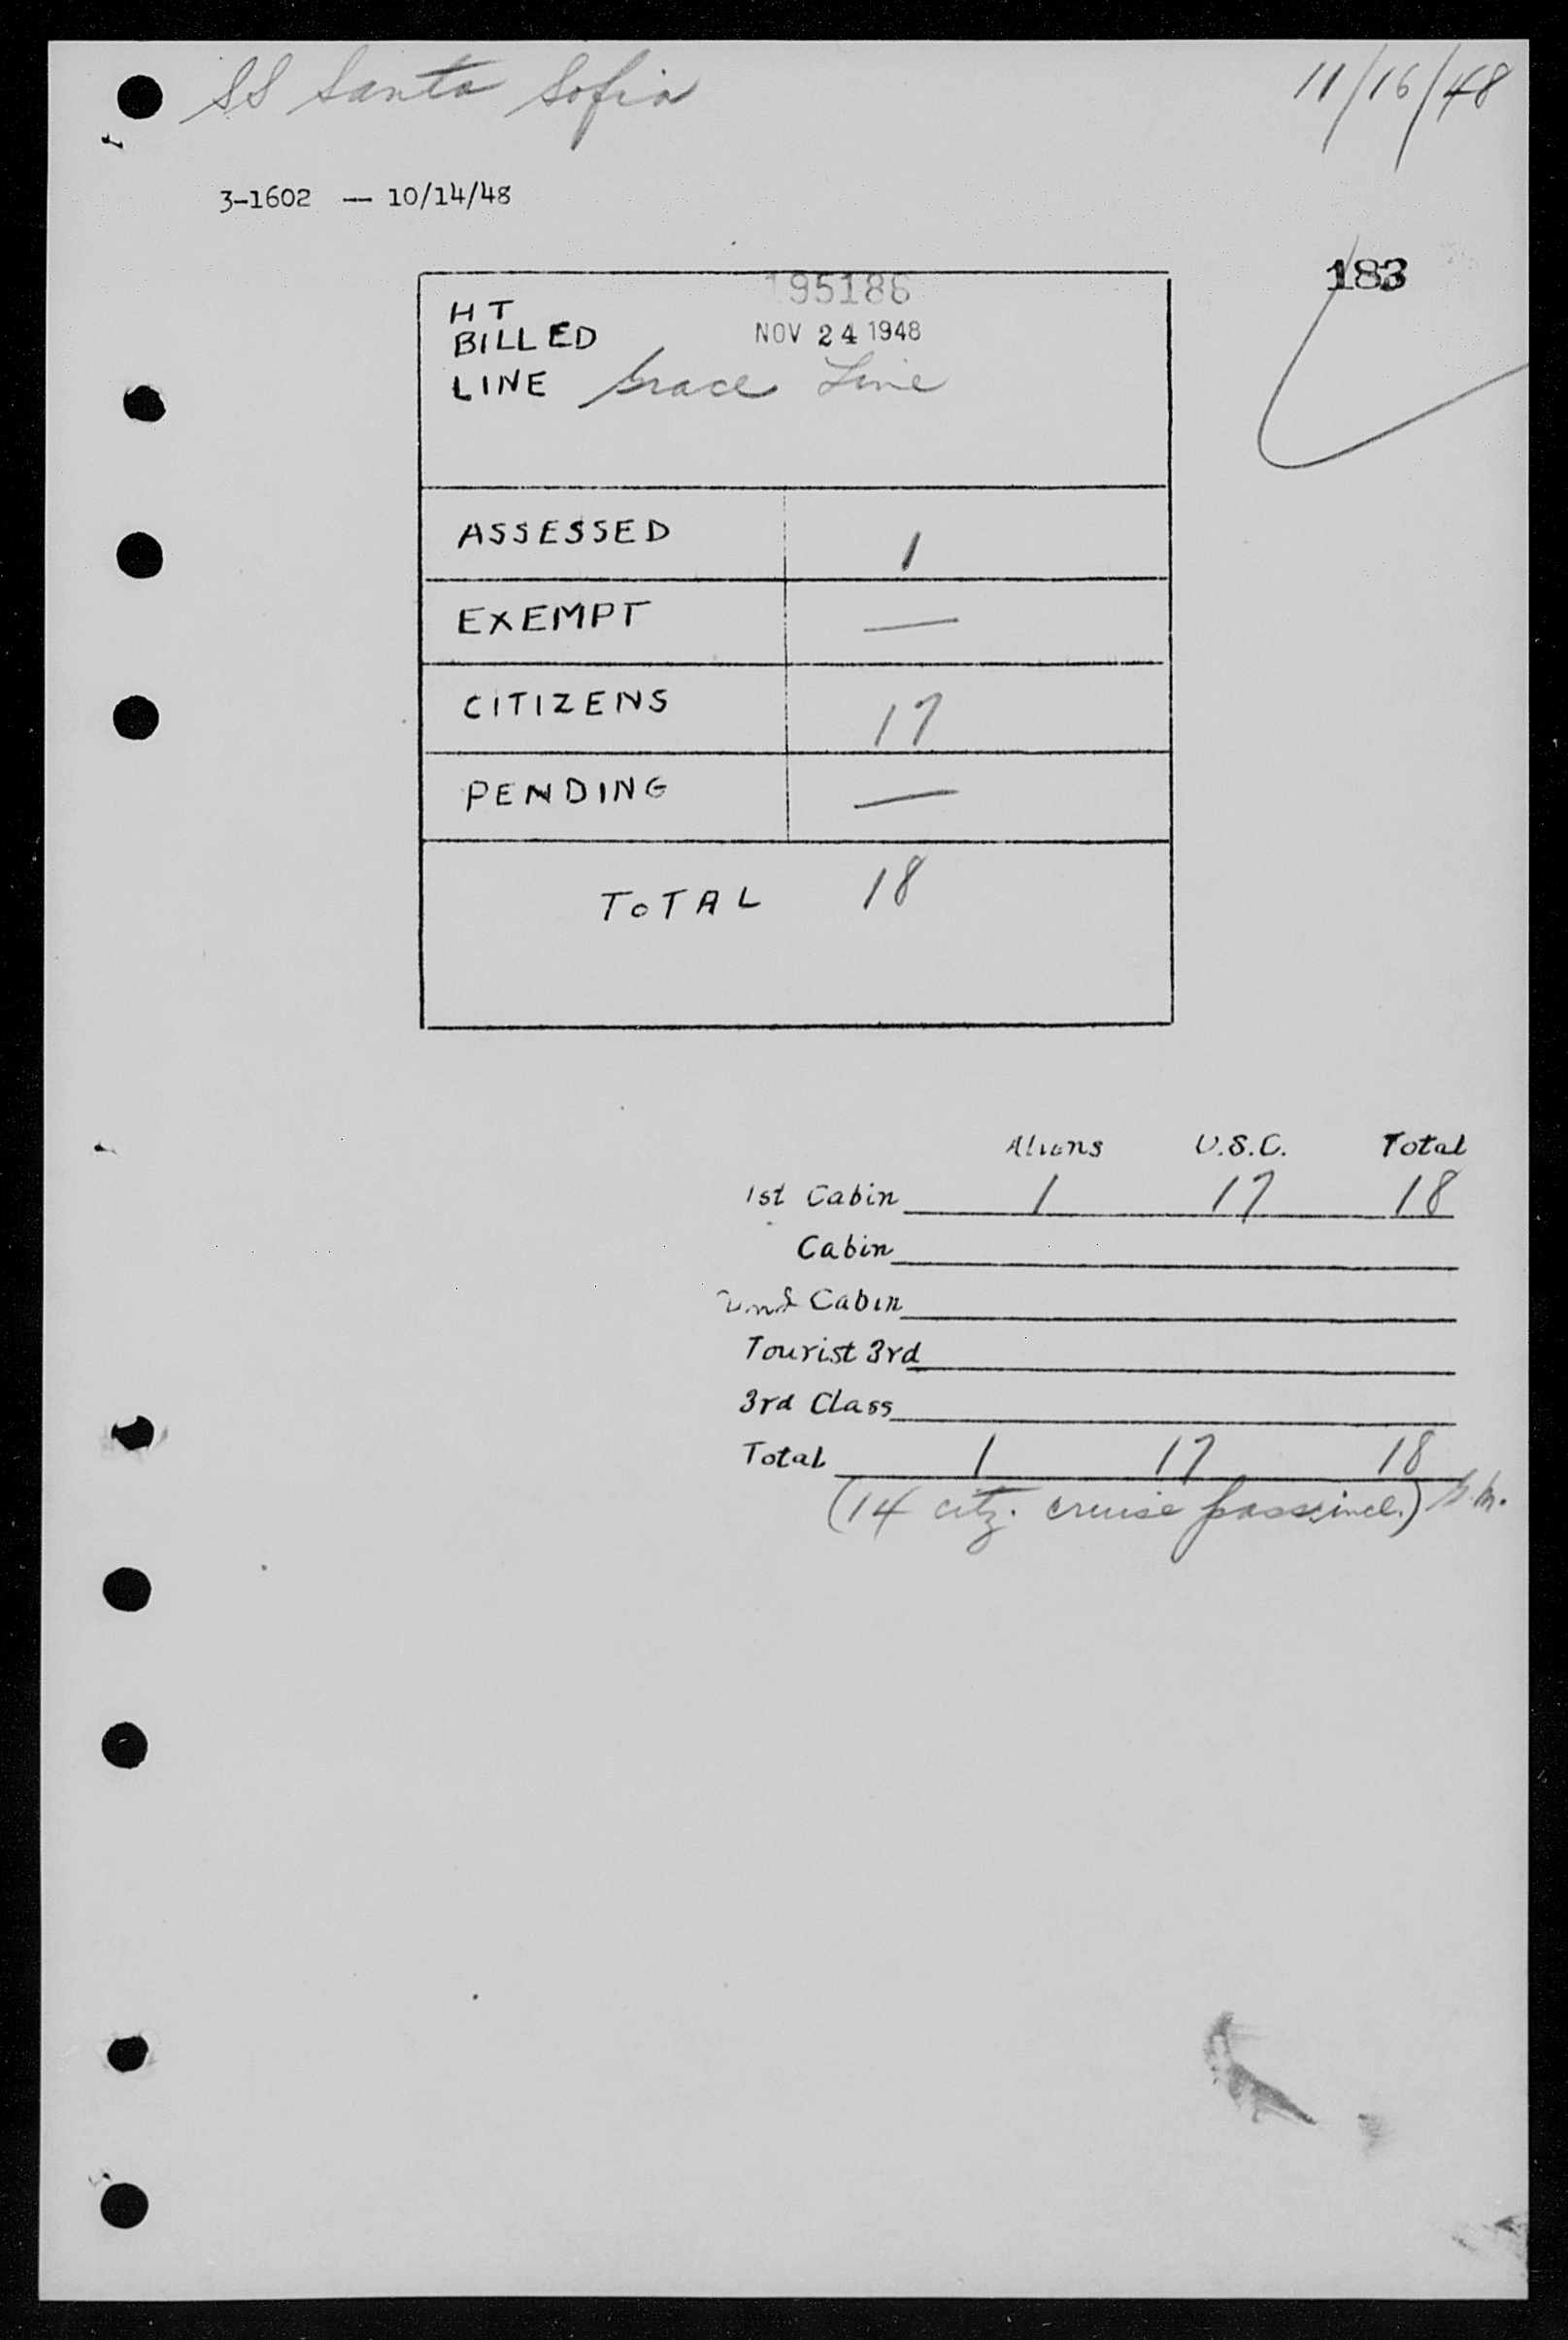 SS Santa Sofia 11/16/48
3-1602 — 10/14/48
183
195186
HT
BILLED NOV 24 1948
LINE Grace Line
ASSESSED 1
EXEMPT —
CITIZENS 17
PENDING —
TOTAL 18
Aliens U.S.C. Total
1st Cabin 1 17 18
Cabin
2nd Cabin
Tourist 3rd
3rd Class
Total 1 17 18
(14 citz. cruise pass. incl.)